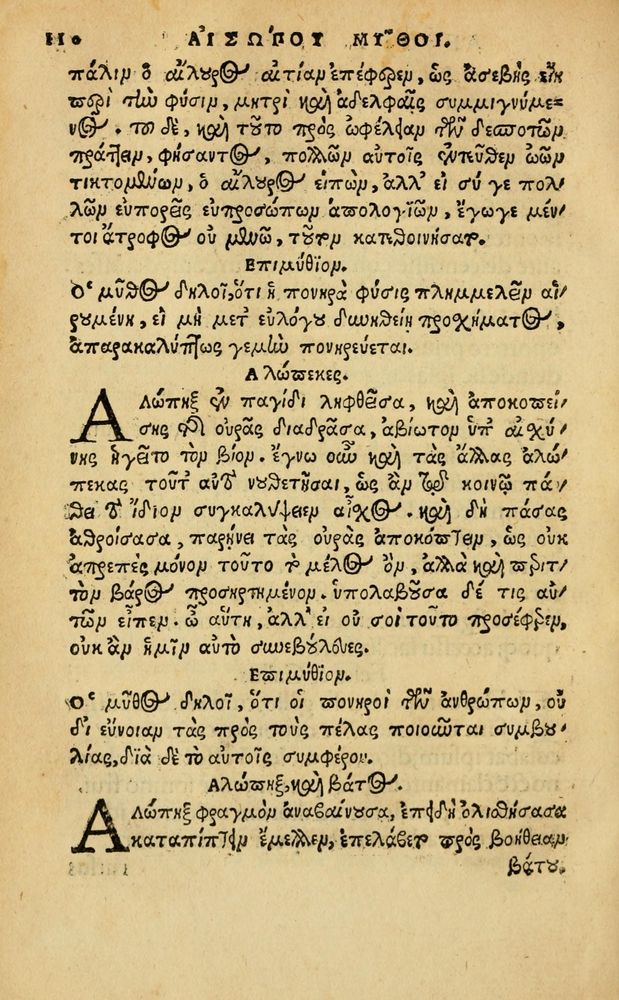 110 ΑΙΣΩΠΟΥ ΜΥ͂ΘΟΙ.
πάλιν ὁ αἴλουρος αἰτίαν ἐπέφερεν, ὡς ἀσεβὴς εἴη
περὶ τὴν φύσιν, μητρὶ καὶ ἀδελφαῖς συμμιγνύμε-
νος. τοῦ δὲ, καὶ τοῦτο πρὸς ὠφέλειαν τῶν δεσποτῶν
πράττειν, φήσαντος, πολλῶν αὐτοῖς ἐντεῦθεν ὠῶν
τικτομένων, ὁ αἴλουρος εἰπὼν, ἀλλ' εἰ σύ γε πολ-
λῶν εὐπορεῖς εὐπροσώπων ἀπολογιῶν, ἔγωγε μέν-
τοι ἄτροφος οὐ μενῶ, τοῦτον κατεθοινήσατο.
Επιμύθιον.
Ὁ μῦθος δηλοῖ, ὅτι ἡ πονηρὰ φύσις πλημμελεῖν αἱ-
ρουμένη, εἰ μὴ μετ' εὐλόγου δυνηθείη προσχήματος,
ἀπαρακαλύπτως γε μὴν πονηρεύεται.
Αλώπεκες.
Αλώπηξ ἐν παγίδι ληφθεῖσα, καὶ ἀποκοπεί-
σης τῆς οὐρᾶς διαδρᾶσα, ἀβίωτον ὑπ' αἰσχύ-
νης ἡγεῖτο τὸν βίον. ἔγνω οὖν καὶ τὰς ἄλλας ἀλώ-
πεκας τοῦτ' αὐτὸ νουθετῆσαι, ὡς ἂν τῷ κοινῷ πά-
θει τὸ ἴδιον συγκαλύψειεν αἶσχος. καὶ δὴ πάσας
ἀθροίσασα, παρῄνει τὰς οὐρὰς ἀποκόπτειν, ὡς οὐκ
ἀπρεπὲς μόνον τοῦτο τὸ μέλος ὂν, ἀλλὰ καὶ περιτ-
τὸν βάρος προσηρτημένον. ὑπολαβοῦσα δέ τις αὐ-
τῶν εἶπεν. ὦ αὕτη, ἀλλ' εἰ οὐ σοὶ τοῦτο προσέφερεν,
οὐκ ἂν ἡμῖν αὐτὸ συνεβούλευες.
Επιμύθιον.
Ὁ μῦθος δηλοῖ, ὅτι οἱ πονηροὶ τῶν ἀνθρώπων, οὐ
δι' εὔνοιαν τὰς πρὸς τοὺς πέλας ποιοῦνται συμβου-
λίας, διὰ δὲ τὸ αὑτοῖς συμφέρον.
Αλώπηξ, καὶ βάτος.
Αλώπηξ φραγμὸν ἀναβαίνουσα, ἐπειδὴ ὀλισθήσασα
καταπίπτειν ἔμελλεν, ἐπελάβετο πρὸς βοήθειαν
βάτου.